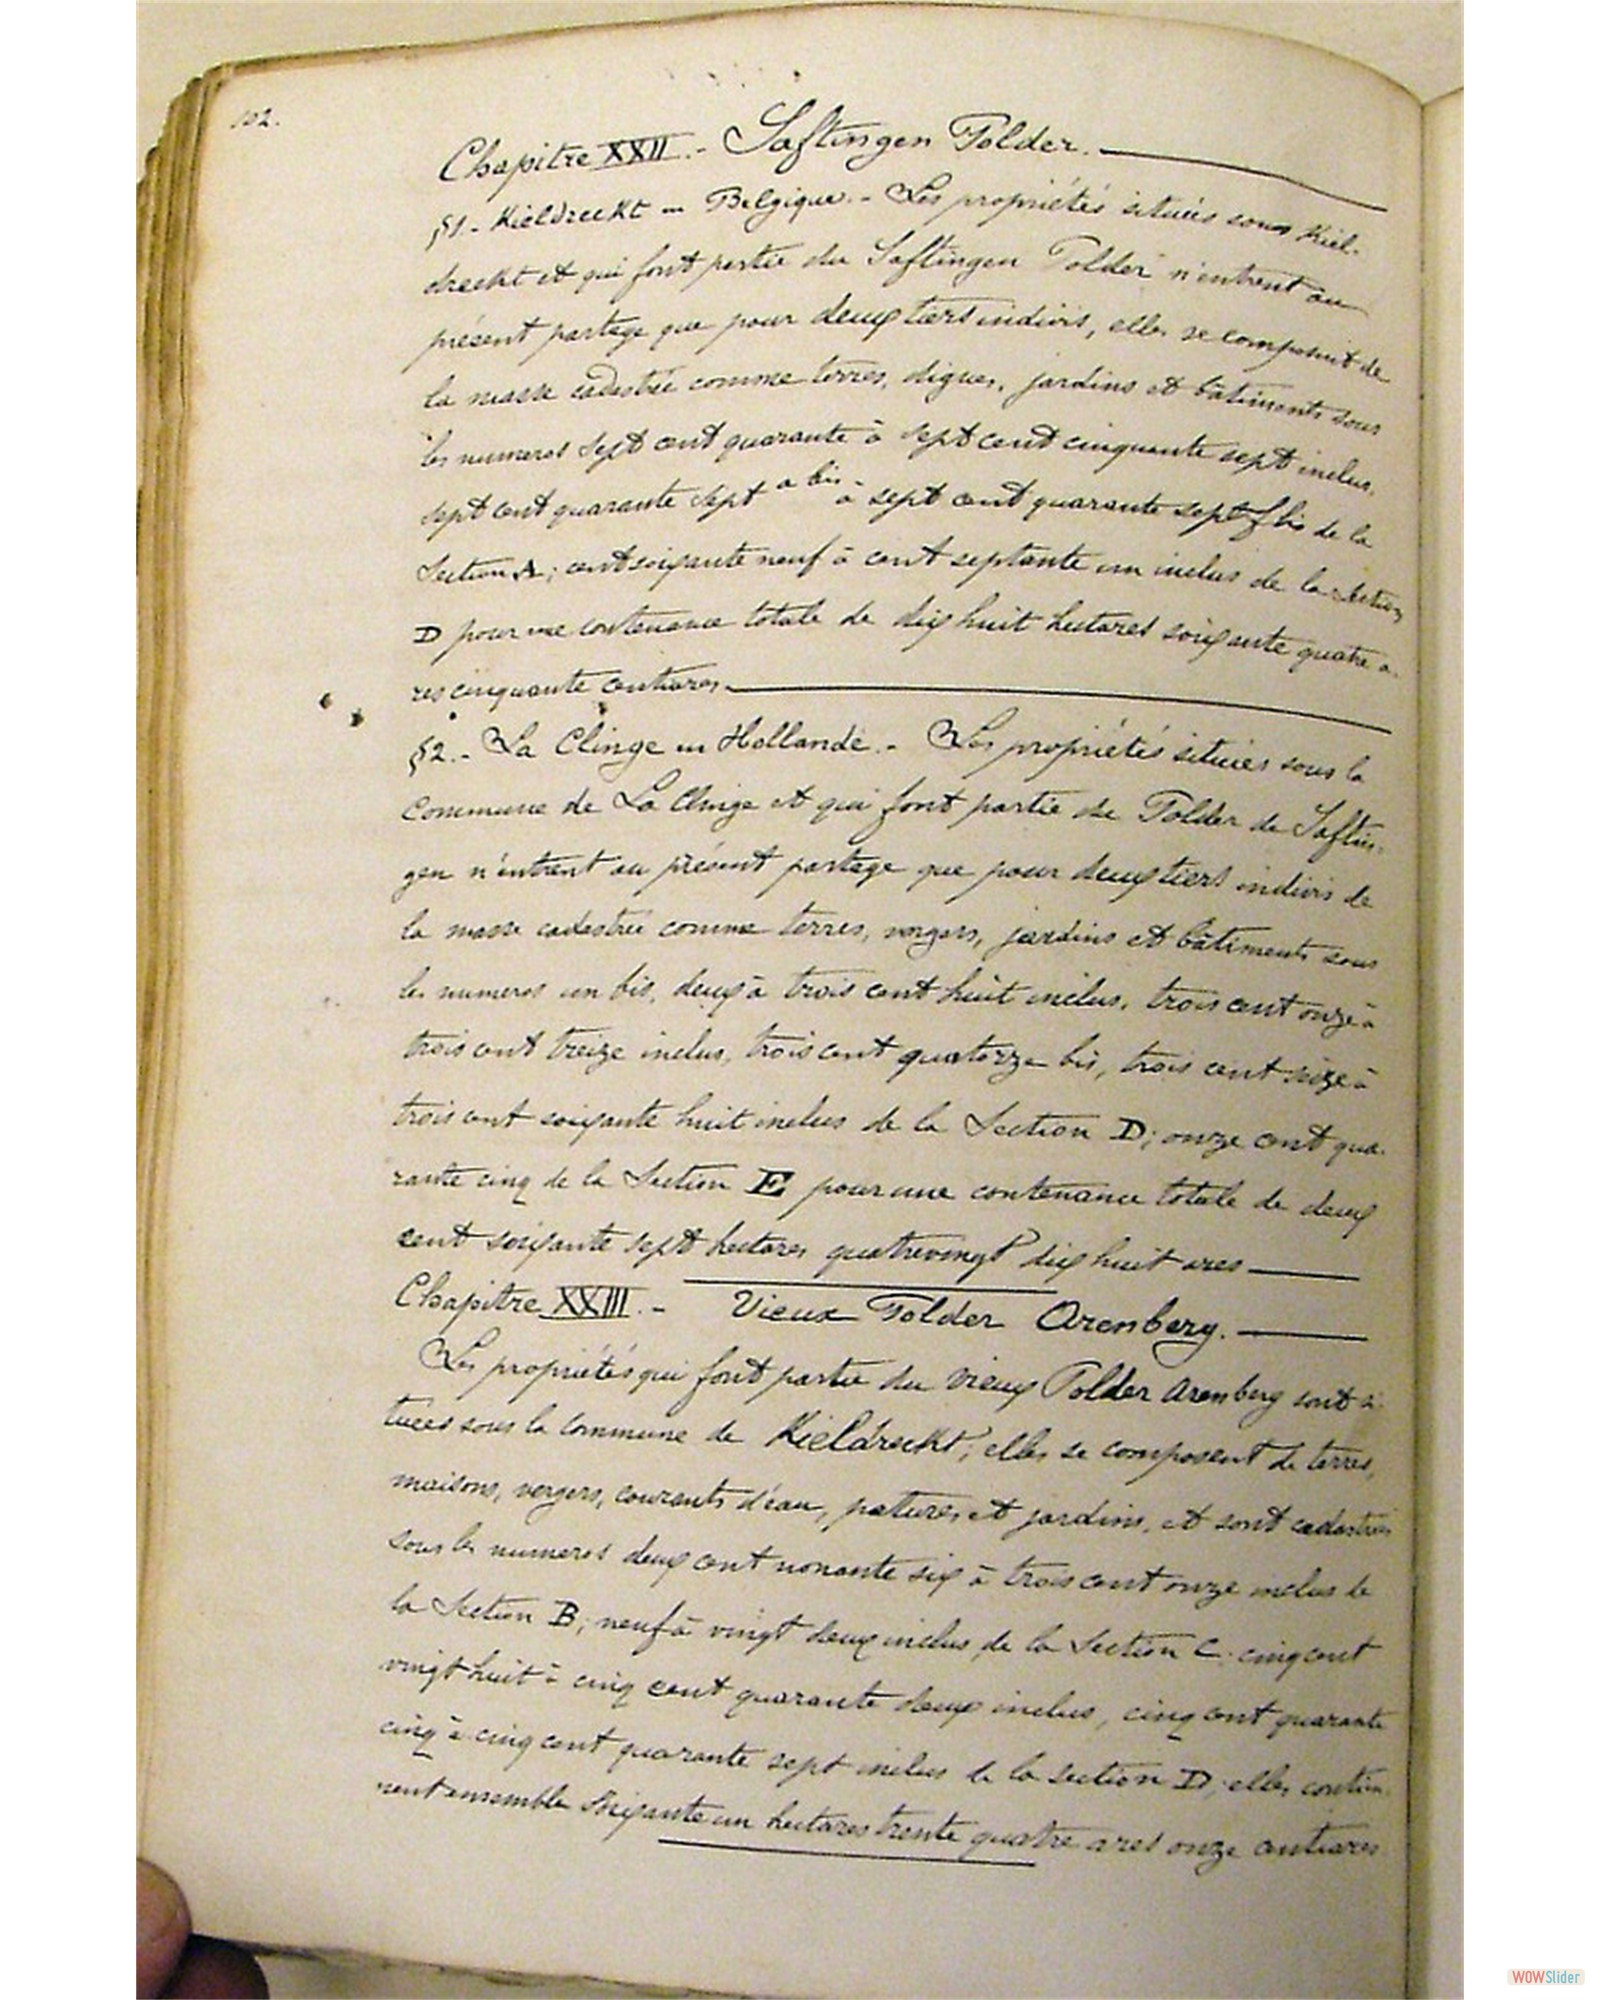 102.
Chapitre XXII.- Saftingen Polder.
§1.- Kieldrecht en Belgique.- Les propriétés situées sous Kiel-
drecht et qui font partie du Saftingen Polder n'entrent au
présent partage que pour deux tiers indivis, elles se composent de
la masse cadastrée comme terres, digues, jardins et bâtiments sous
les numeros sept cent quarante à sept cent cinquante sept inclus,
sept cent quarante sept a bis à sept cent quarante sept f bis de la
Section A; cent soixante neuf à cent septante un inclus de la Section
D pour une contenance totale de dix huit hectares soixante quatre a-
res cinquante centiares
§2.- La Clinge en Hollande.- Les propriétés situées sous la
Commune de La Clinge et qui font partie du Polder de Saftin-
gen n'entrent au présent partage que pour deux tiers indivis de
la masse cadastrée comme terres, vergers, jardins et bâtiments sous
les numeros un bis, deux à trois cent huit inclus, trois cent onze à
trois cent treize inclus, trois cent quatorze bis, trois cent seize à
trois cent soixante huit inclus de la Section D; onze cent qua-
rante cinq de la Section E pour une contenance totale de deux
cent soixante sept hectares quatrevingt dix huit ares
Chapitre XXIII.- Vieux Polder Arenberg.
Les propriétés qui font partie du Vieux Polder Arenberg sont si-
tuées sous la commune de Kieldrecht; elles se composent de terres,
maisons, vergers, courants d'eau, patures et jardins, et sont cadastrées
sous les numeros deux cent nonante six à trois cent onze inclus de
la Section B; neuf à vingt deux inclus de la Section C. cinq cent
vingt huit à cinq cent quarante deux inclus, cinq cent quarante
cinq à cinq cent quarante sept inclus de la section D; elles contien-
nent ensemble soixante un hectares trente quatre ares onze centiares
WOWSlider